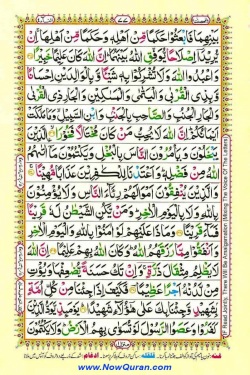 بَيْنِهِمَا فَابْعَثُوْا حَكَمًا مِّنْ اَهْلِهٖ وَحَكَمًا مِّنْ اَهْلِهَا ۚ اِنْ
يُّرِيْدَآ اِصْلَاحًا يُّوَفِّقِ اللّٰهُ بَيْنَهُمَا ؕ اِنَّ اللّٰهَ كَانَ عَلِيْمًا خَبِيْرًا
وَاعْبُدُوا اللّٰهَ وَلَا تُشْرِكُوْا بِهٖ شَيْـًٔا وَّبِالْوَالِدَيْنِ اِحْسَانًا
وَّبِذِى الْقُرْبٰى وَالْيَتٰمٰى وَالْمَسٰكِيْنِ وَالْجَارِ ذِى الْقُرْبٰى
وَالْجَارِ الْجُنُبِ وَالصَّاحِبِ بِالْجَنْۢبِ وَابْنِ السَّبِيْلِ ۙ وَمَا مَلَكَتْ
اَيْمَانُكُمْ ؕ اِنَّ اللّٰهَ لَا يُحِبُّ مَنْ كَانَ مُخْتَالًا فَخُوْرَا ۙ الَّذِيْنَ
يَبْخَلُوْنَ وَيَاْمُرُوْنَ النَّاسَ بِالْبُخْلِ وَيَكْتُمُوْنَ مَآ اٰتٰىهُمُ
اللّٰهُ مِنْ فَضْلِهٖ ؕ وَاَعْتَدْنَا لِلْكٰفِرِيْنَ عَذَابًا مُّهِيْنًا
وَالَّذِيْنَ يُنْفِقُوْنَ اَمْوَالَهُمْ رِئَآءَ النَّاسِ وَلَا يُؤْمِنُوْنَ
بِاللّٰهِ وَلَا بِالْيَوْمِ الْاٰخِرِ ؕ وَمَنْ يَّكُنِ الشَّيْطٰنُ لَهٗ قَرِيْنًا
فَسَآءَ قَرِيْنًا وَمَاذَا عَلَيْهِمْ لَوْ اٰمَنُوْا بِاللّٰهِ وَالْيَوْمِ الْاٰخِرِ
وَاَنْفَقُوْا مِمَّا رَزَقَهُمُ اللّٰهُ ؕ وَكَانَ اللّٰهُ بِهِمْ عَلِيْمًا اِنَّ اللّٰهَ
لَا يَظْلِمُ مِثْقَالَ ذَرَّةٍ ۚ وَاِنْ تَكُ حَسَنَةً يُّضٰعِفْهَا وَيُؤْتِ
مِنْ لَّدُنْهُ اَجْرًا عَظِيْمًا فَكَيْفَ اِذَا جِئْنَا مِنْ كُلِّ اُمَّةٍۭ
بِشَهِيْدٍ وَّجِئْنَا بِكَ عَلٰى هٰٓؤُلَآءِ شَهِيْدًا يَوْمَئِذٍ يَّوَدُّ الَّذِيْنَ
كَفَرُوْا وَعَصَوُا الرَّسُوْلَ لَوْ تُسَوّٰى بِهِمُ الْاَرْضُ ؕ وَلَا يَكْتُمُوْنَ
www.NowQuran.com